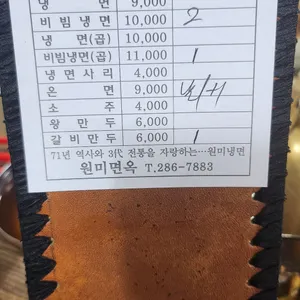 냉 면 9,000
비 빔 냉 면 10,000 2
냉 면(곱) 10,000
비빔냉면(곱) 11,000 1
냉 면 사 리 4,000
온 면 9,000
소 주 4,000
왕 만 두 6,000
갈 비 만 두 6,000 1
71년 역사와 3代 전통을 자랑하는…원미냉면
원미면옥 T.286-7883